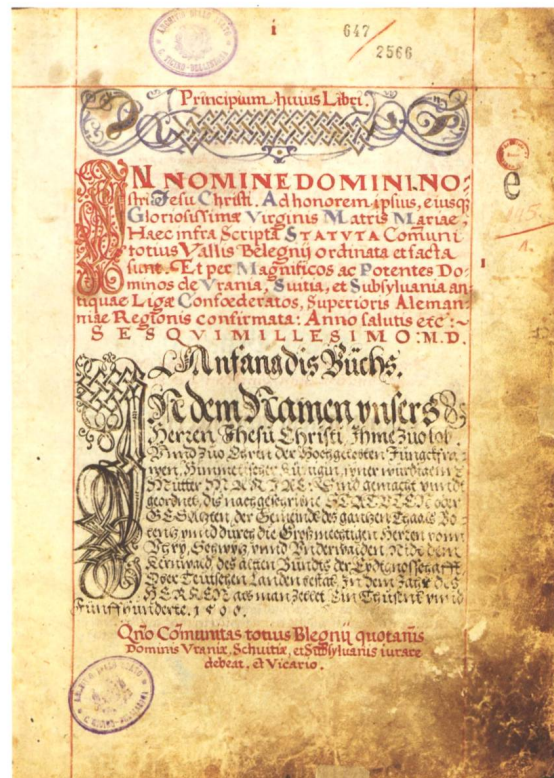 i
647
2566
Principium huius Libri.
IN NOMINE DOMINI NO-
stri Jesu Christi, Ad honorem ipsius, eiusq;
Gloriosissimæ Virginis Matris Mariae,
Haec infra Scripta STATVTA Comuni
totius Vallis Belegnij ordinata et facta
sunt. Et per Magnificos ac Potentes Do-
minos de Vrania, Suitia, et Subsyluania an-
tiquae Ligæ Confoederatos, Superioris Aleman-
niae Regionis confirmata: Anno salutis etc:~
SESQVIMILLESIMO: M.D.
Anfang dis Büchs.
IN dem Namen vnsers
Herren Jhesu Christi Jhme zuo lob.
Vnnd zuo Ehren der Hochgelobten Jungkfra-
wen, Himmel Künigin, yner würdigen
Mutter MARIAE, Sind gemacht vnnd
geordnet, dis nachgeschribne STATVTEN oder
GESATZEN, der Gemeind des gantzen Thaals
vnnd durch die Großmechtigen Herren vonn
Vry, Schwytz, vnnd Vnderwalden, Nidt dem
Kernwald, des alten Bündts der Eydtgnosschafft
Ober Teütschen Landen bestät, In dem Jahr des
HERREN als man zellet Ein Thusent vnnd
Fünffhunderte. 1500.
Qño Comunitas totius Blegnij quotañis
Dominis Vraniæ, Schuitiæ, et Subsyluaniæ iurare
debeat, et Vicario.